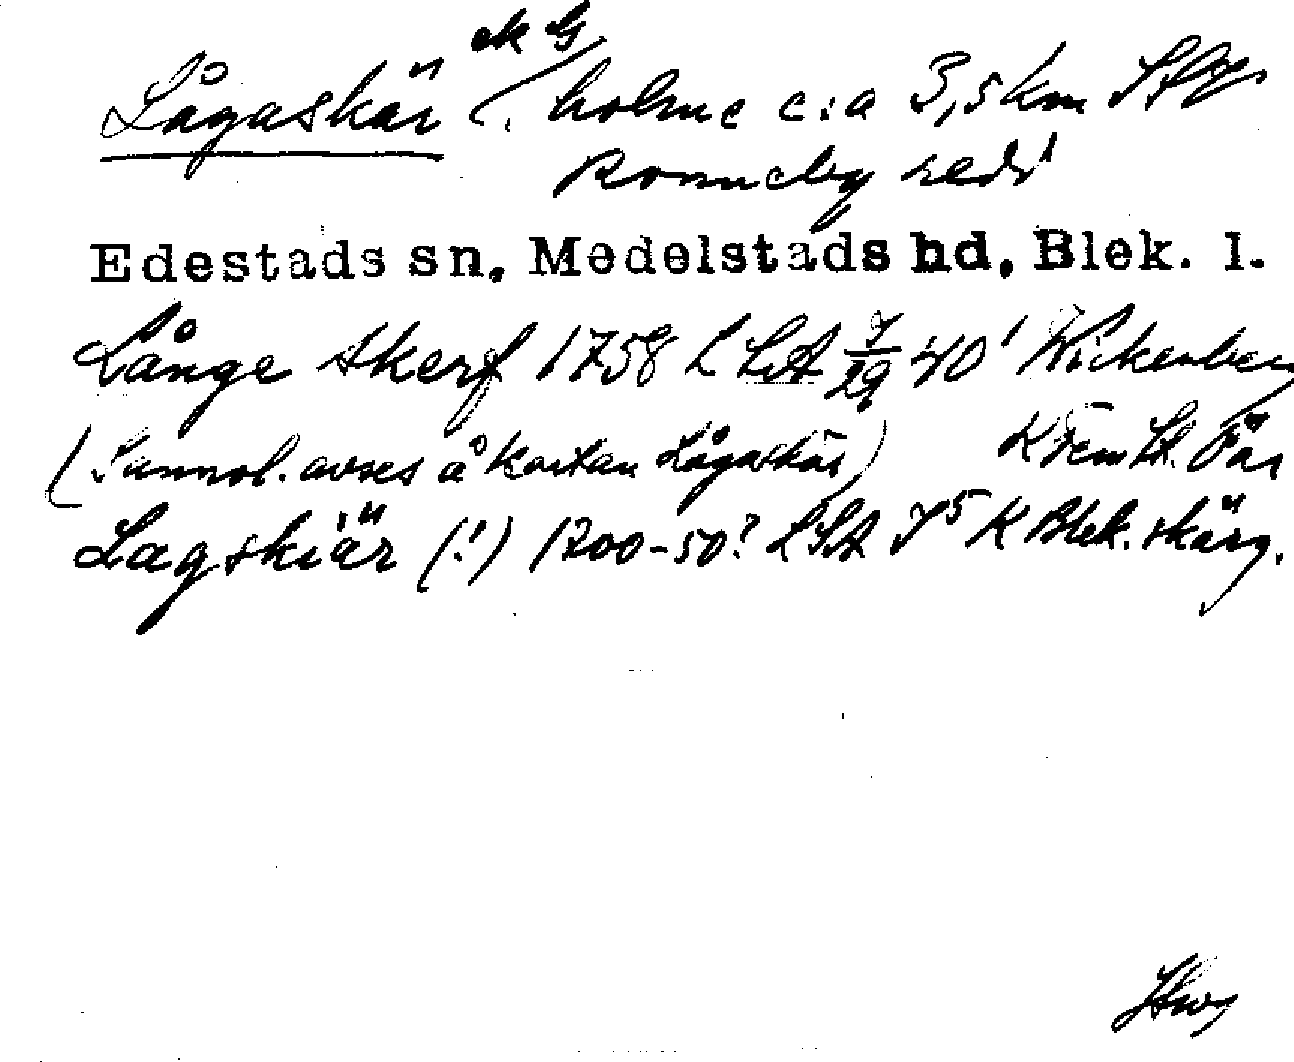 ek G
Lågaskär holme c:a 3,5 km
Ronneby redd
Edestads sn, Medelstads hd, Blek. l.
Långe skerf 1758 L LSA 7/29 40' Wickenberg
(Sannol. avses å kartan Lågaskär) K
Lagskiär (!) 1700-50? LSA 75 K Blek. skärg.